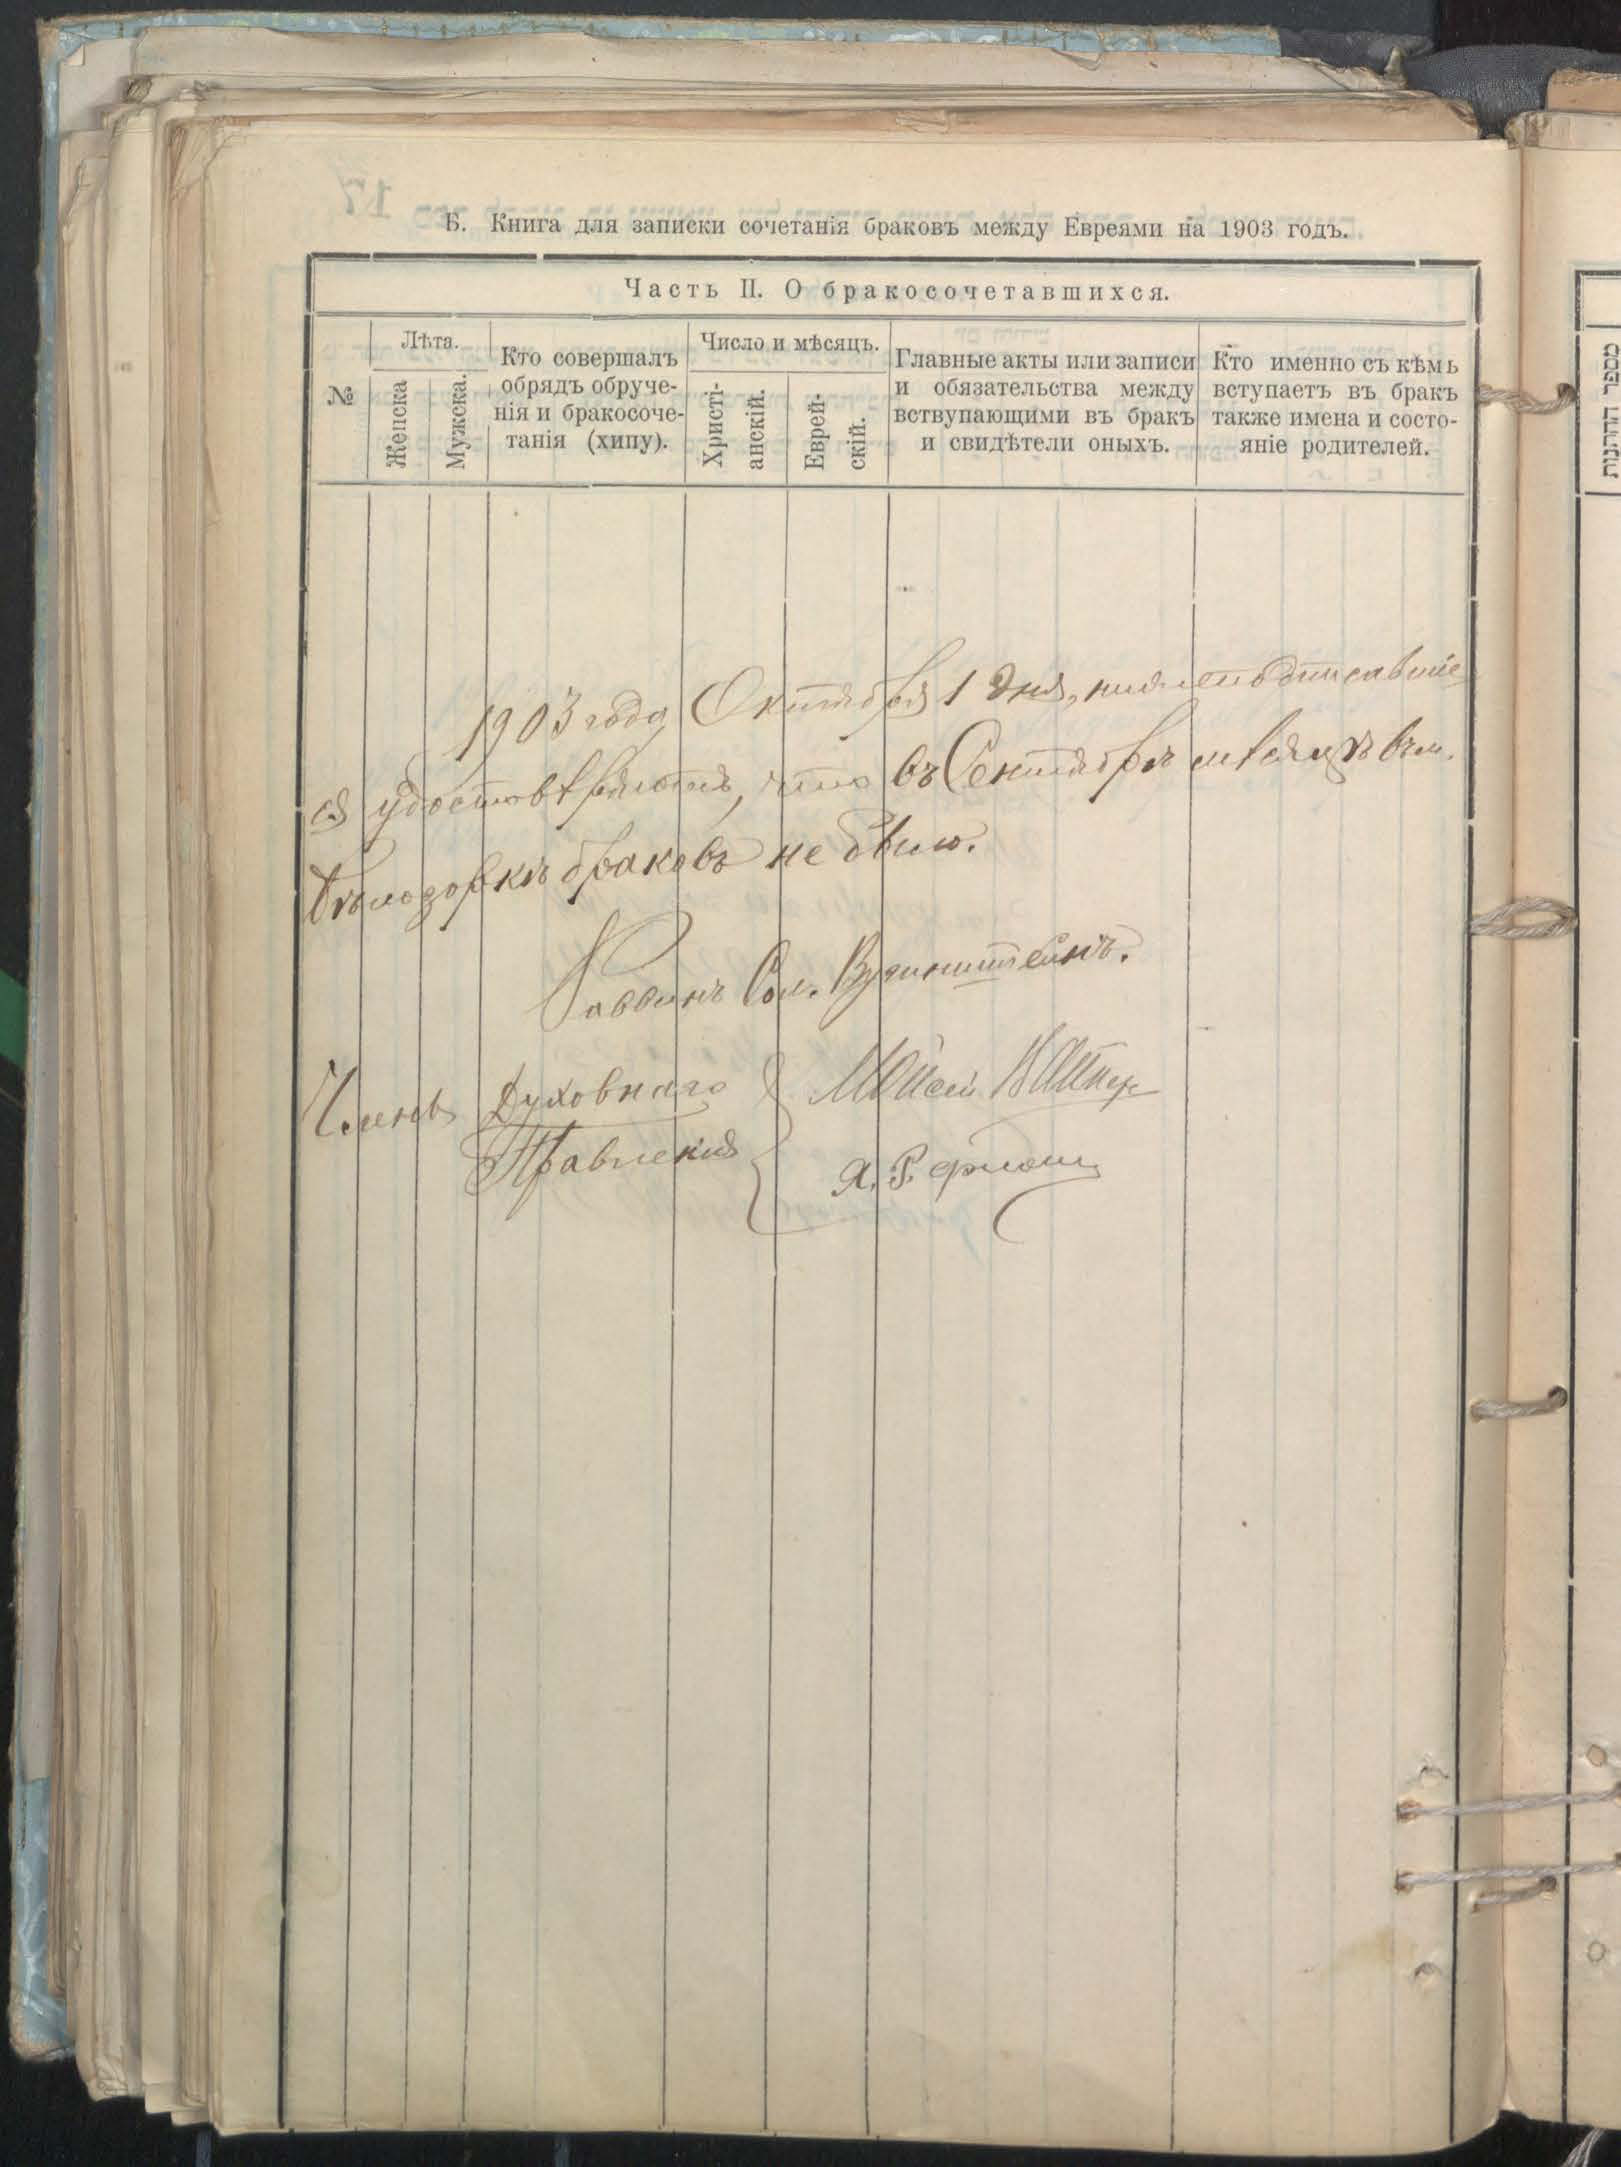 Б. Книга для записки сочетанія браковъ между Евреями на 1903 годъ.
Часть II. О бракосочетавшихся.
№
Лѣта.
Женска
Мужска.
Кто совершалъ
обрядъ обруче-
нія и бракосоче-
танія (хипу).
Число и мѣсяцъ.
Христі-
анскій.
Еврей-
скій.
Главные акты или записи
и обязательства между
вствупающими въ бракъ
и свидѣтели оныхъ.
Кто именно съ кѣмъ
вступаетъ въ бракъ
также имена и состо-
яніе родителей.
1903 года Октября 1 дня, нижеподписавшіе
ся удостовѣряютъ, что въ Сентябрѣ мѣсяцѣ въ м.
Бѣлозоркѣ браковъ не было.
Раввинъ Сол.
Члены Духовнаго
Правленія
Мойсей
Я. Р.
מספר החתונות
17